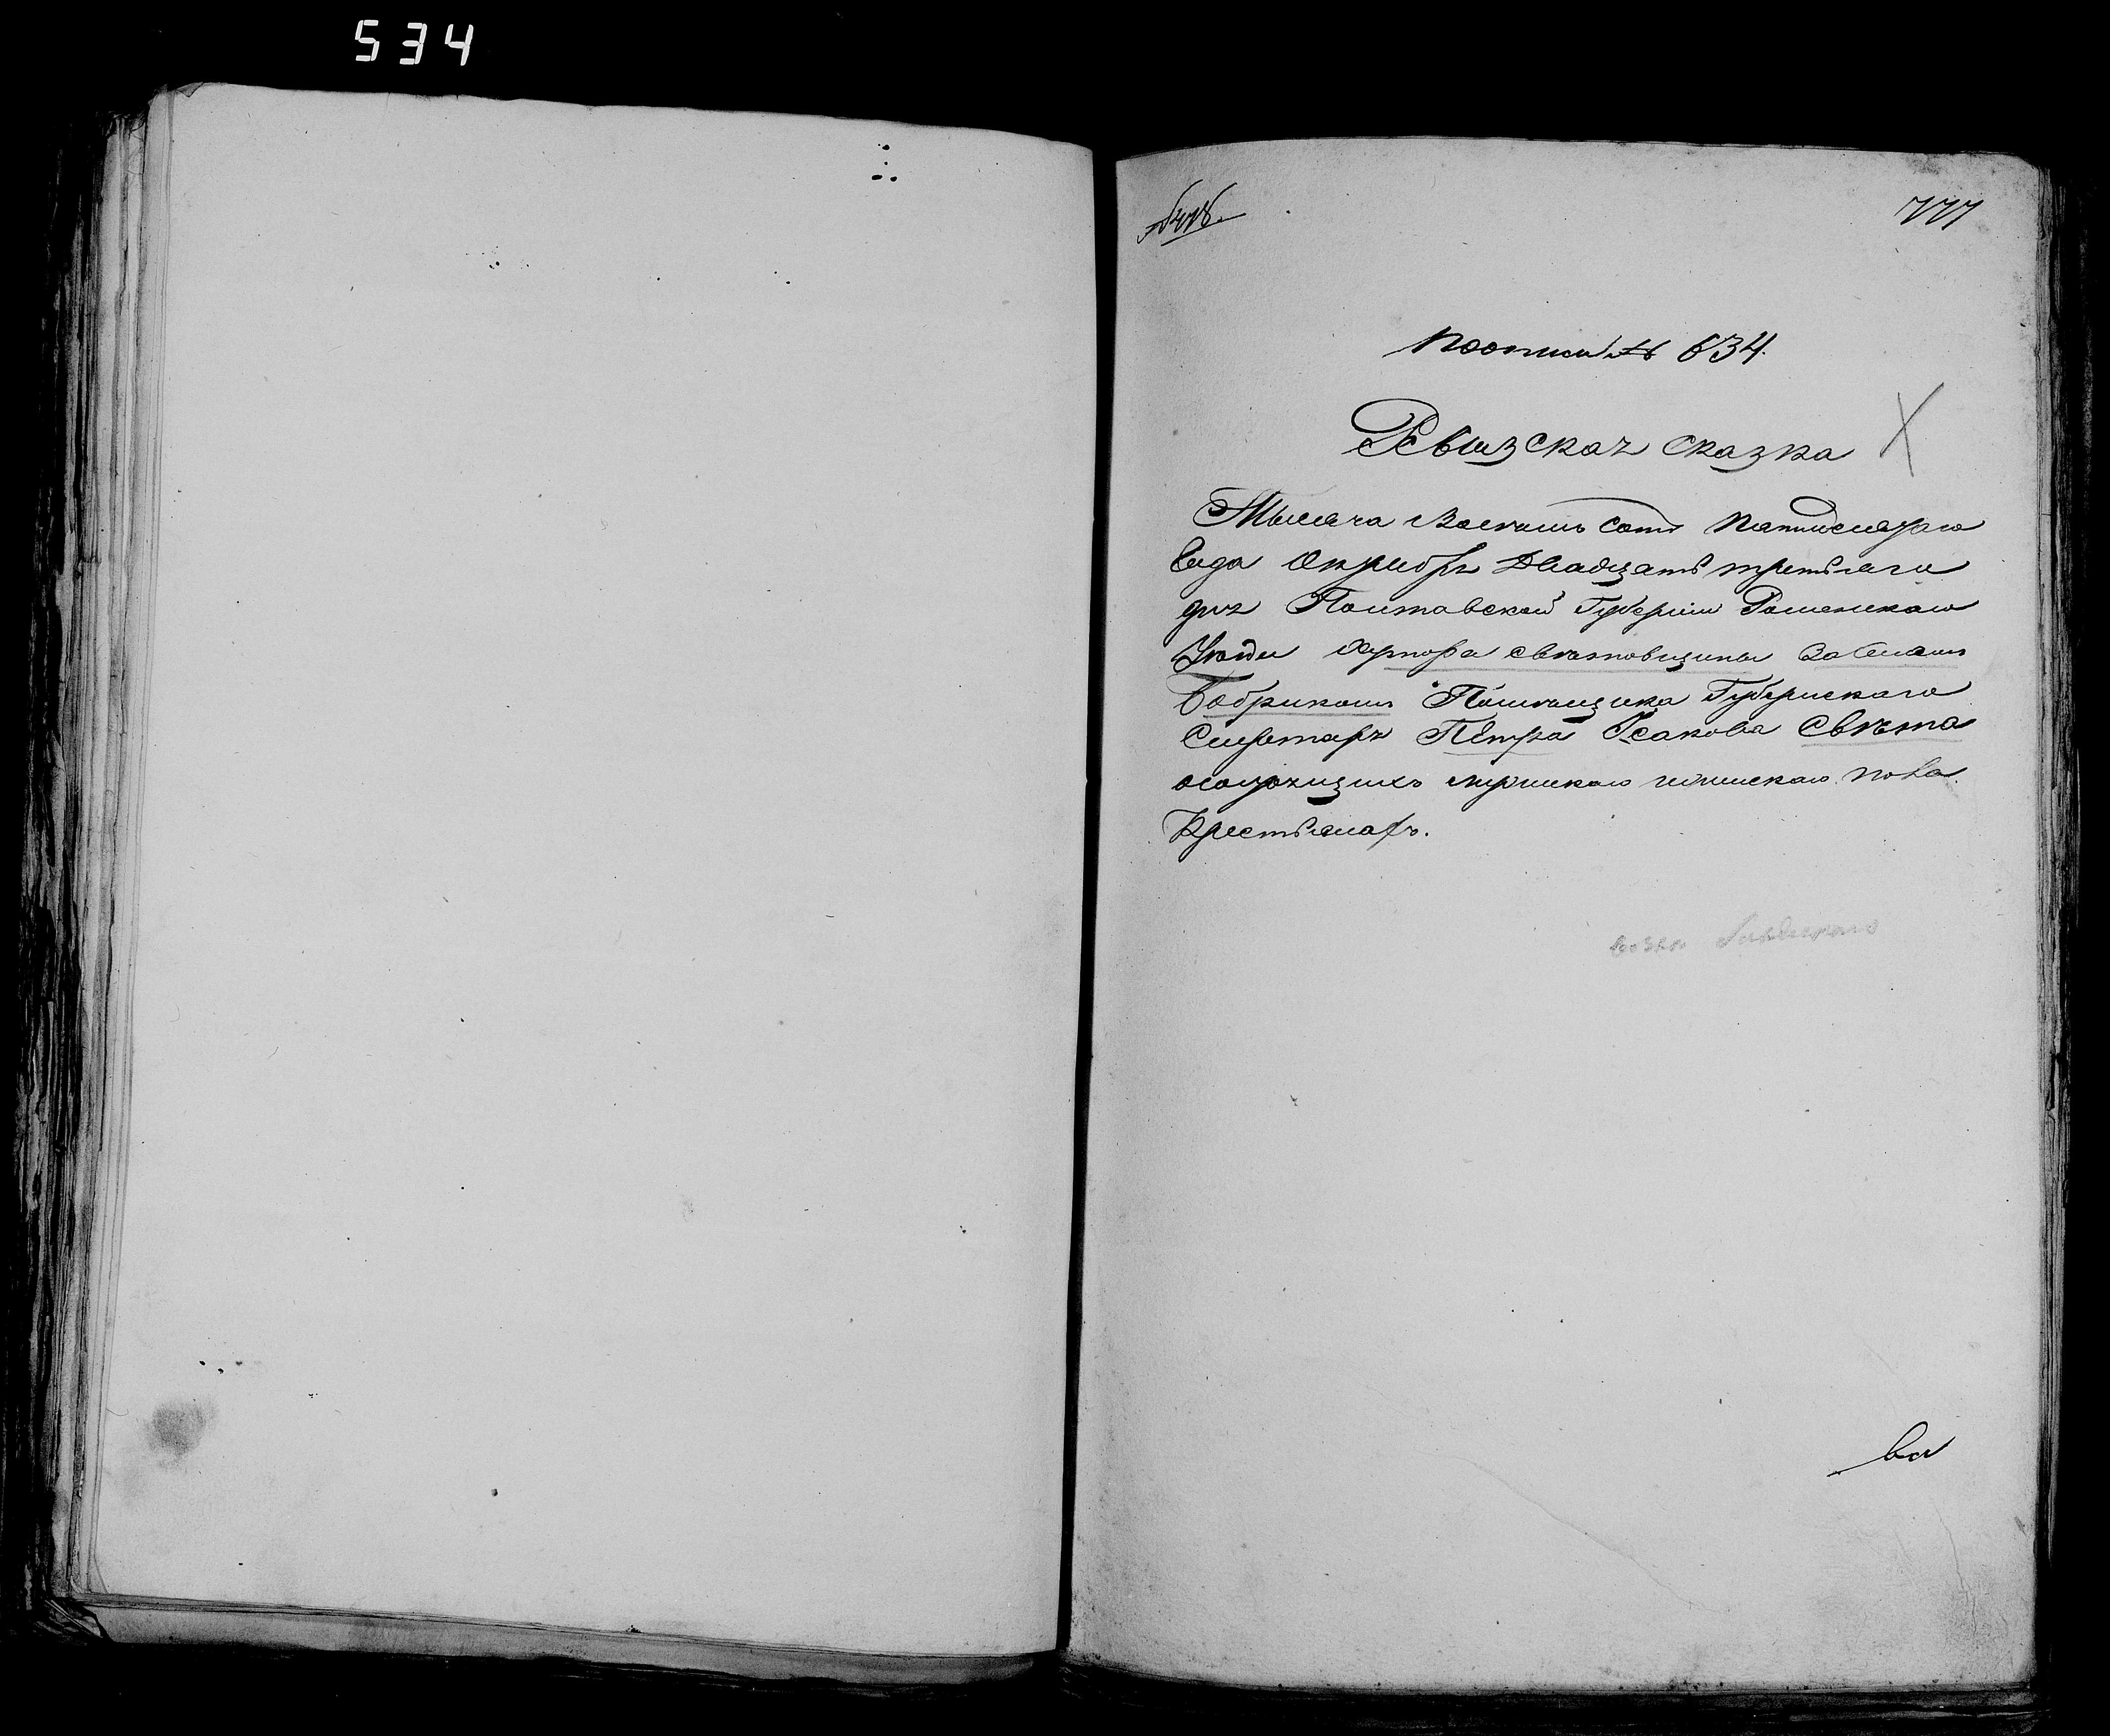 534
777
По описи № 634.
Ревизская сказка
Тысяча Восемь сотъ пятидесятаго
года Октября Двадцать третьяго
дня Полтавской Губерніи Роменскаго
Уезда Хутора Свѣтовщины
Бобрикомъ Помещика Губернскаго
Секретаря Петра Исакова Свѣта
о состоящихъ мужескаго женскаго пола
Крестьянахъ.